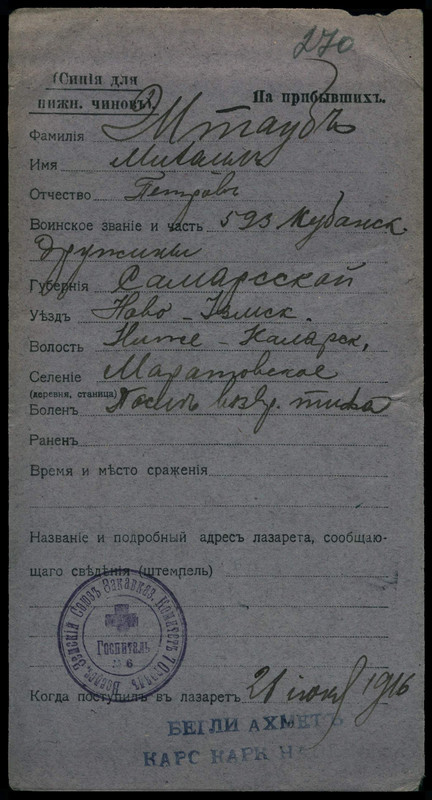 270
(Синія для
нижн. чиновъ).
На прибывшихъ.
Фамилія Штаубъ
Имя Михаилъ
Отчество Петровъ
Воинское званіе и часть 593 Кубанск.
дружины
Губернія Самарсской
Уѣздъ Ново-Узмск.
Волость Ниже-Караман,
Селеніе
(деревня, станица)
Боленъ Послѣ возвр. тифа
Раненъ
Время и мѣсто сраженія
Названіе и подробный адресъ лазарета, сообщаю-
щаго свѣдѣнія (штемпель)
Всеросс. Земскій Союзъ Закавказ. Комитетъ
Госпиталь
№ 6
Когда поступилъ въ лазаретъ 21 іюня 1916
БЕГЛИ АХМЕТЪ
КАРС КАРК НА